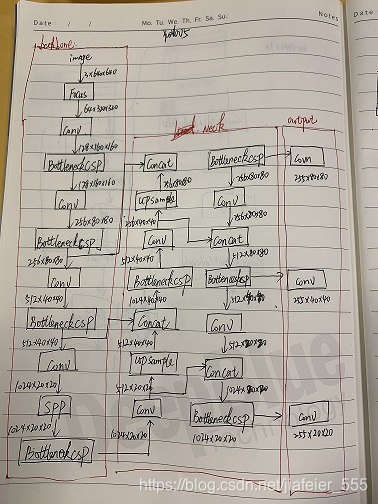 Date / /
Mo. Tu. We. Th. Fr. Sa. Su.
Notes
Date
yolov5
backbone
image
3×640×640
Focus
64×320×320
Conv
128×160×160
BottleneckCSP
128×160×160
Conv
256×80×80
BottleneckCSP
256×80×80
Conv
512×40×40
BottleneckCSP
512×40×40
Conv
1024×20×20
SPP
1024×20×20
BottleneckCSP
Neck
Concat
256×80×80
UPSample
256×40×40
Conv
512×40×40
BottleneckCSP
1024×40×40
Concat
512×40×40
UPSample
512×20×20
Conv
1024×20×20
BottleneckCSP
256×80×80
Conv
256×80×80
Concat
512×80×80
BottleneckCSP
512×40×40
Conv
512×20×20
Concat
1024×20×20
BottleneckCSP
1024×20×20
output
Conv
255×80×80
Conv
255×40×40
Conv
255×20×20
https://blog.csdn.net/jiafeier_555